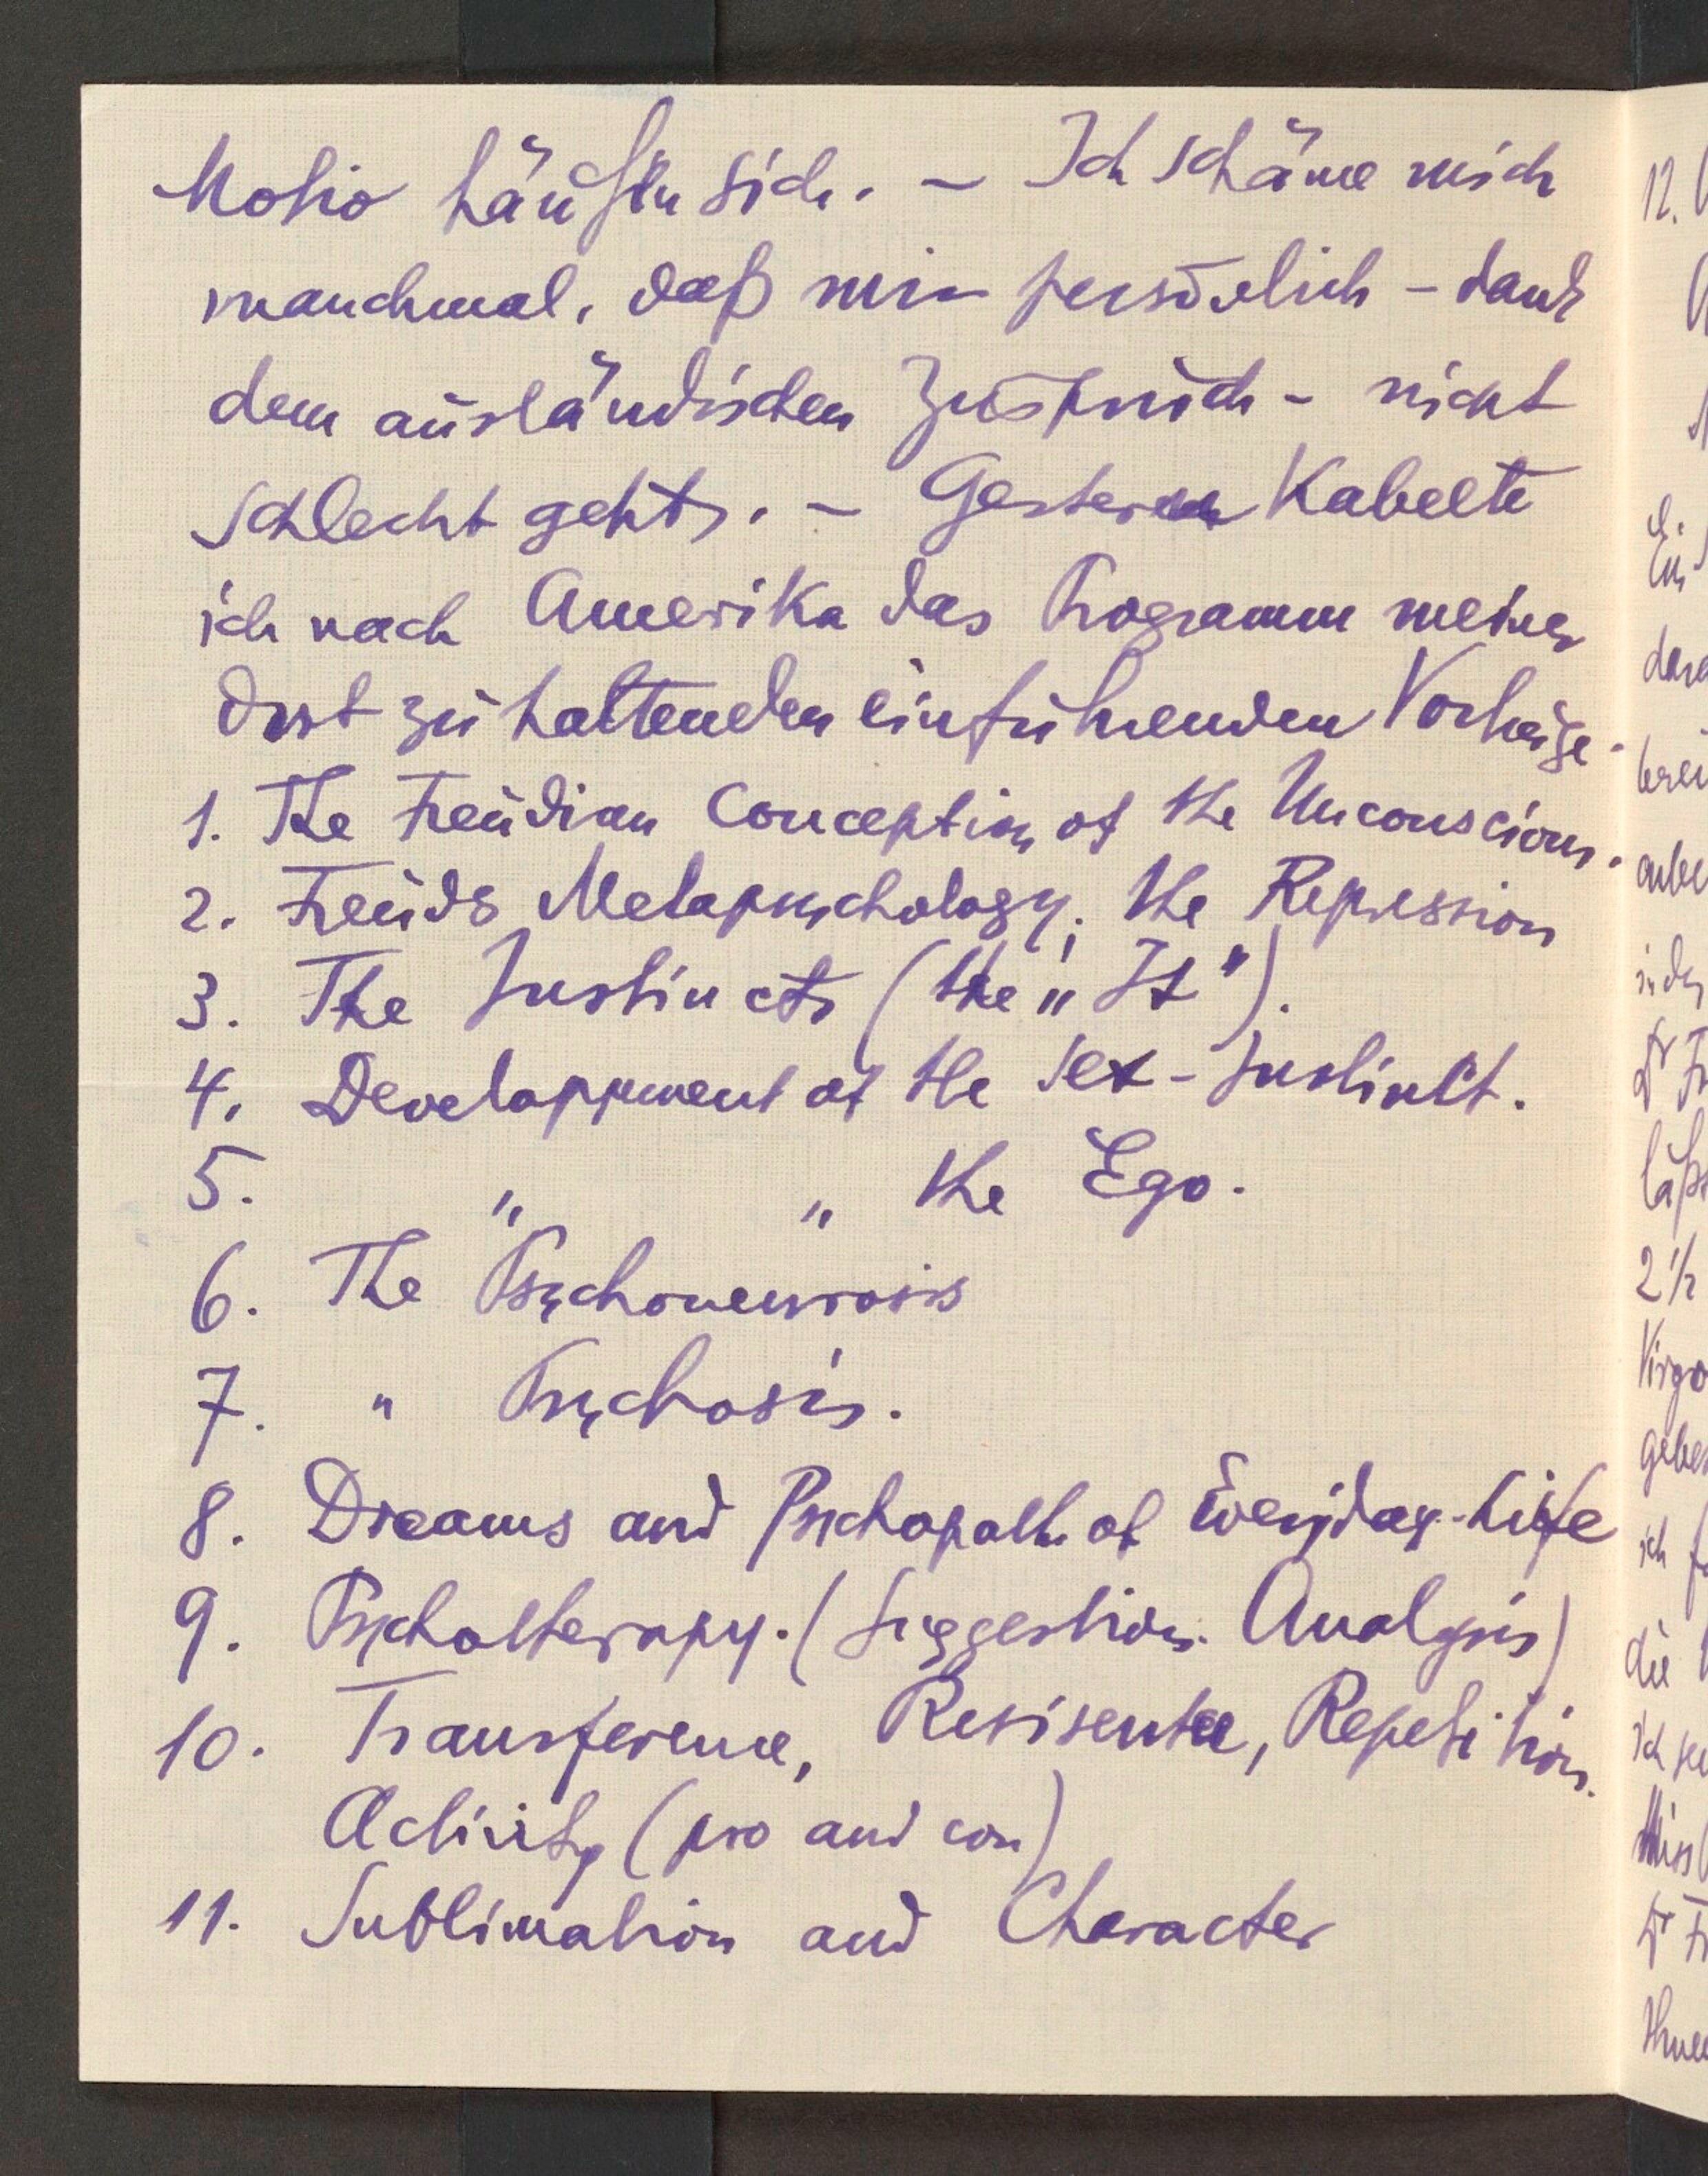 häufen sich. – Ich schäme mich
manchmal, daß mir persönlich – dank
dem ausländischen Zuspruch – nicht
schlecht geht. – Gestern kabelte
ich nach Amerika das Programm meiner
dort zu haltenden einführenden Vorträge.
1. The Freudian Conception of the Unconscious.
2. Freuds Metapsychology; the Repression
3. The Instincts (the „It").
4. Developpment of the Sex-Instinct.
5. „ „ the Ego.
6. The Psychoneurosis
7. " Psychosis.
8. Dreams and Psychopath of Everyday-Life
9. Psychotherapy. (Suggestion. Analysis)
10. Transference, Resistentce, Repetition.
Activity (pro and con)
11. Sublimation and Character
12.
2½
Miss